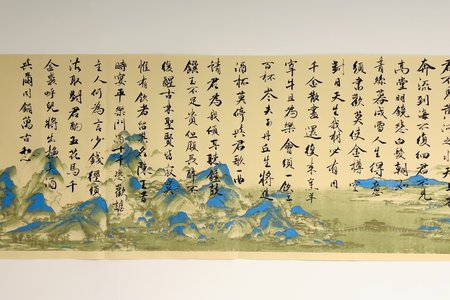 君不見黃河之水天上來
奔流到海不復回君不見
高堂明鏡悲白髮朝如
青絲暮成雪人生得意
須盡歡莫使金樽空
對月天生我材必有用
千金散盡還復來烹羊
宰牛且為樂會須一飲三
百杯岑夫子丹丘生將進
酒杯莫停與君歌一曲
請君為我傾耳聽鐘鼓
饌玉不足貴但願長醉不
復醒古來聖賢皆寂寞
惟有飲者留其名陳王昔
時宴平樂斗酒十千恣歡謔
主人何為言少錢徑須
沽取對君酌五花馬千
金裘呼兒將出換美酒
與爾同銷萬古愁